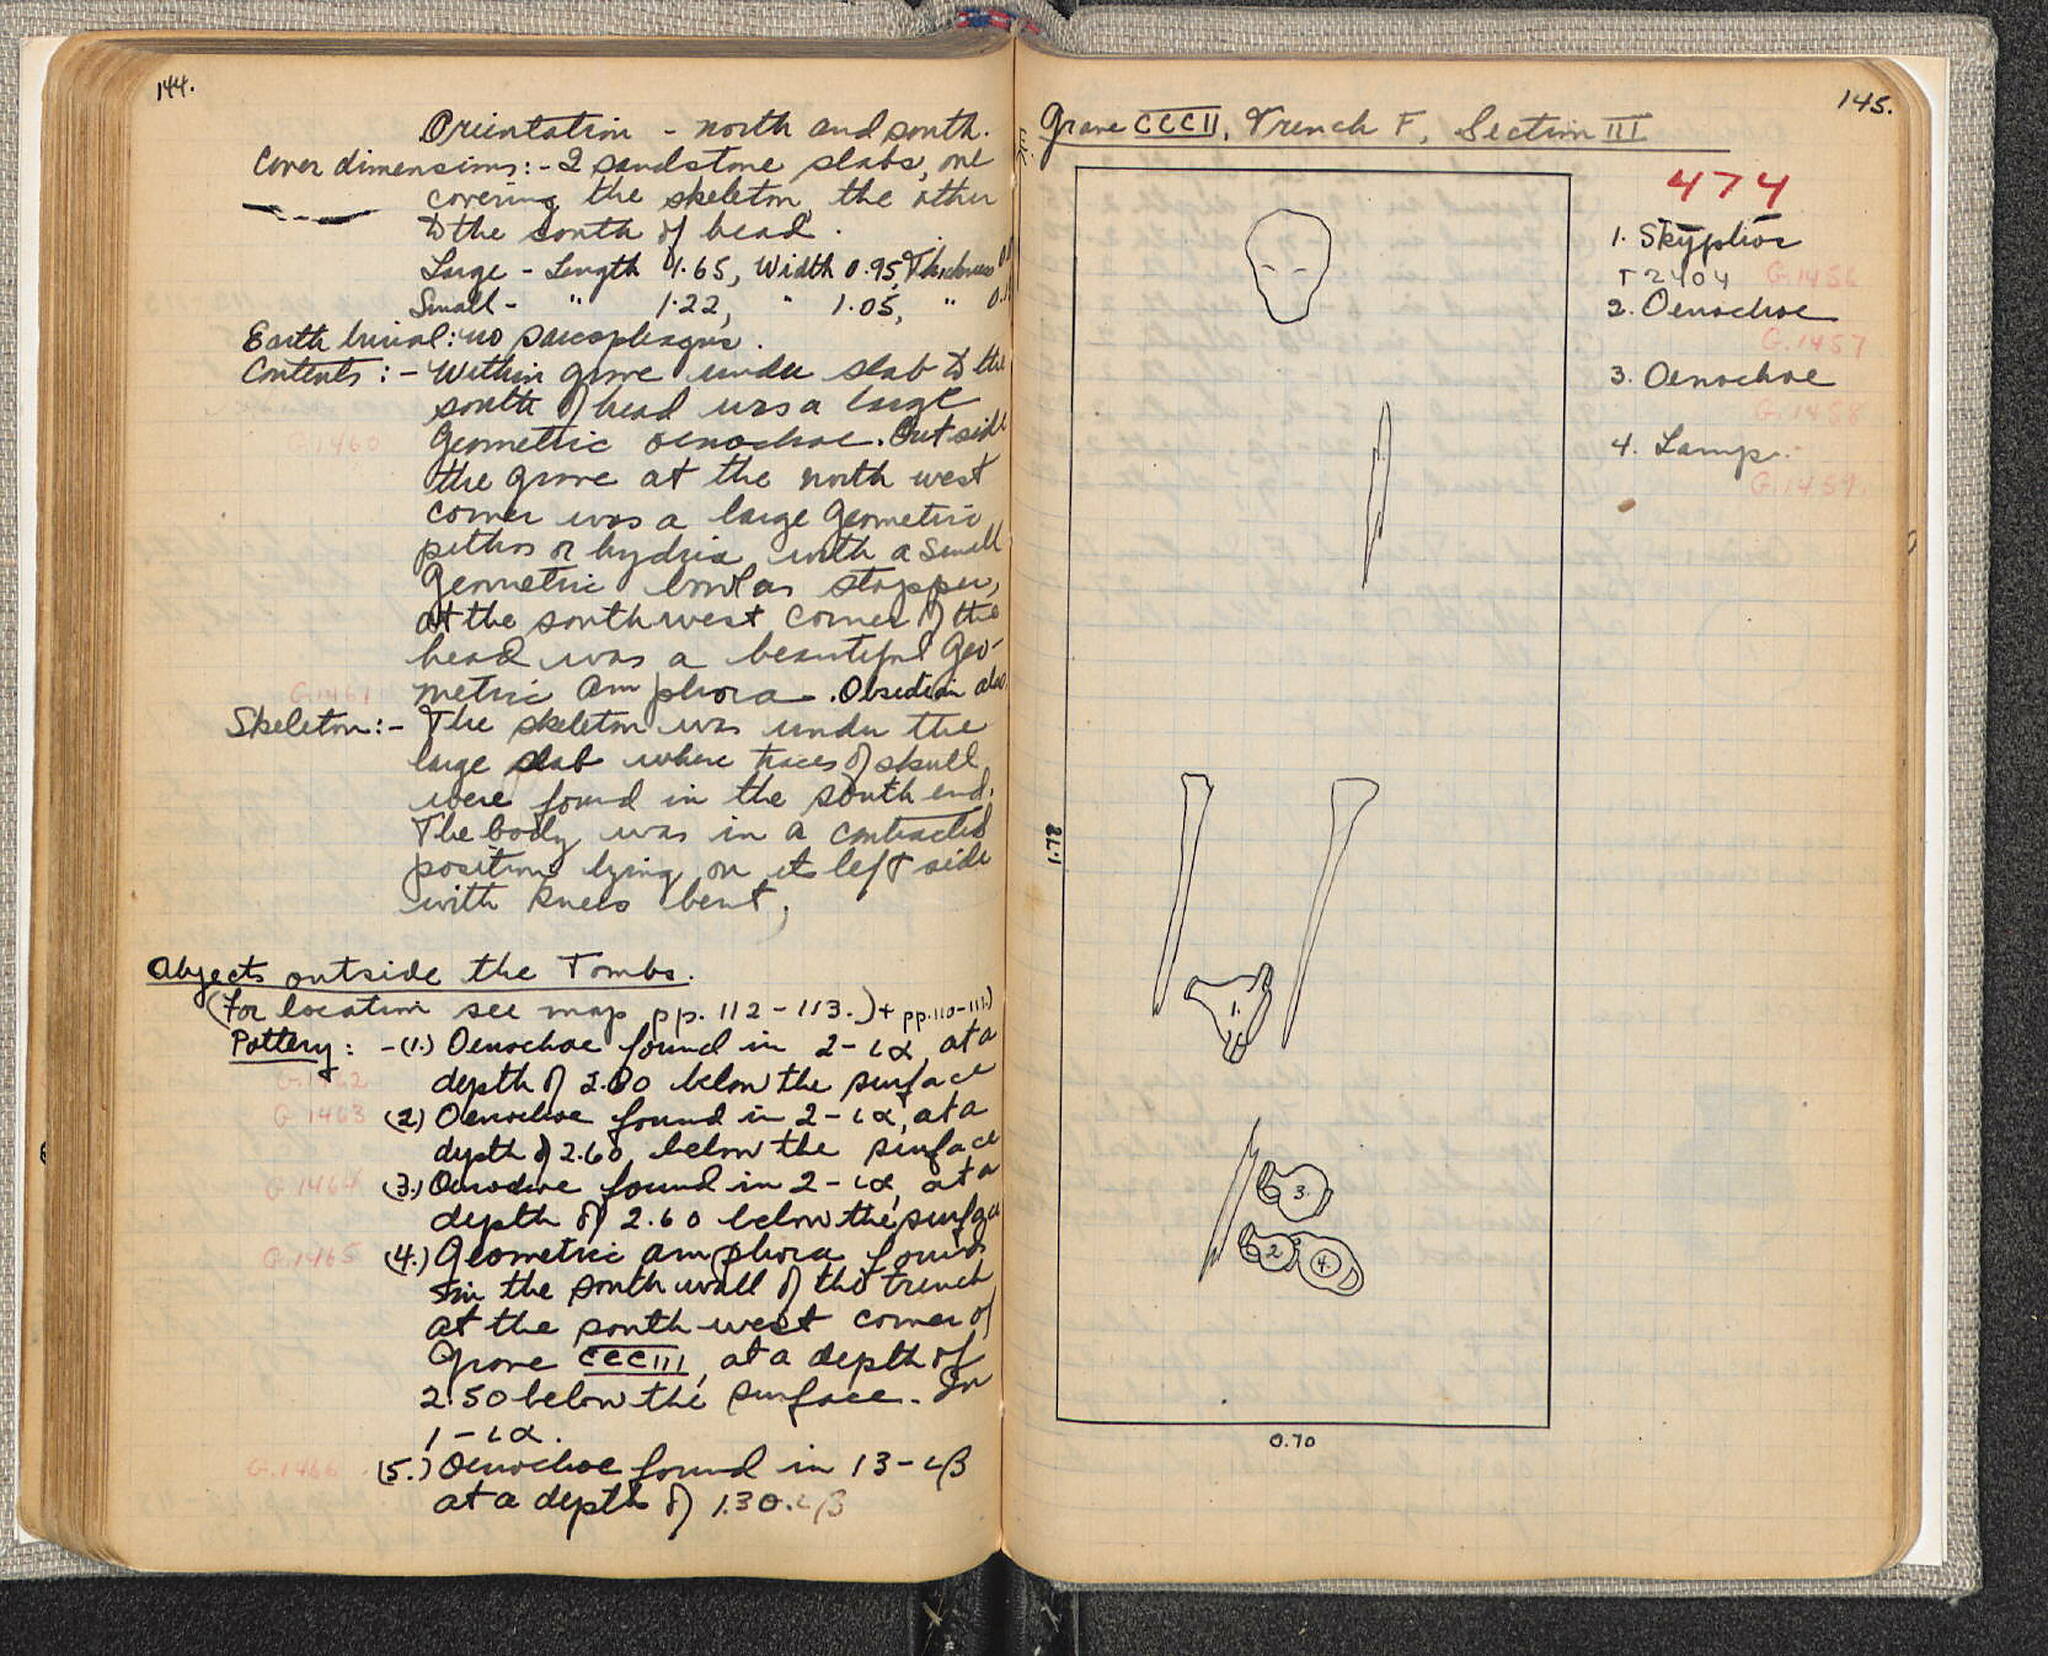 144.
Orientation - north and south.
Cover dimensions:- 2 sandstone slabs, one
covering the skeleton, the other
to the south of head.
Large - Length 1.65, Width 0.95, Thickness
Small - " 1.22, " 1.05, "
Earth burial: no sarcophagus.
Contents:- Within grave under slab to the
south of head was a large
G.1460 Geometric oenochoe. Outside
the grave at the north west
corner was a large Geometric
pithos or hydria with a small
Geometric bowl as stopper,
at the southwest corner of the
head was a beautiful Geo-
G.1461 metric amphora. Obsidian also
Skeleton:- The skeleton was under the
large slab where traces of skull
were found in the south end.
The body was in a contracted
position lying on it left side
with knees bent.
Objects outside the Tombs.
(For location see map pp. 112-113.) + pp. 110-111.)
Pottery: -(1.) Oenochoe found in 2-ια, at a
G.1462 depth of 2.60 below the surface
G.1463 (2) Oenochoe found in 2-ια, at a
depth of 2.60 below the surface
G.1464 (3.) Oenochoe found in 2-ια, at a
depth of 2.60 below the surface
G.1465 (4.) Geometric amphora found
in the south wall of the trench
at the south-west corner of
Grave CCCIII, at a depth of
2.50 below the surface. In
1-ια.
G.1466 (5.) Oenochoe found in 13-ιβ
at a depth of 1.30. ιβ
145.
Grave CCCII, Trench F, Section III
474
1. Skyphos
T2404 G.1456
2. Oenochoe
G.1457
3. Oenochoe
G.1458
4. Lamp.
G.1459.
1.78
1.
3.
2
4.
0.70